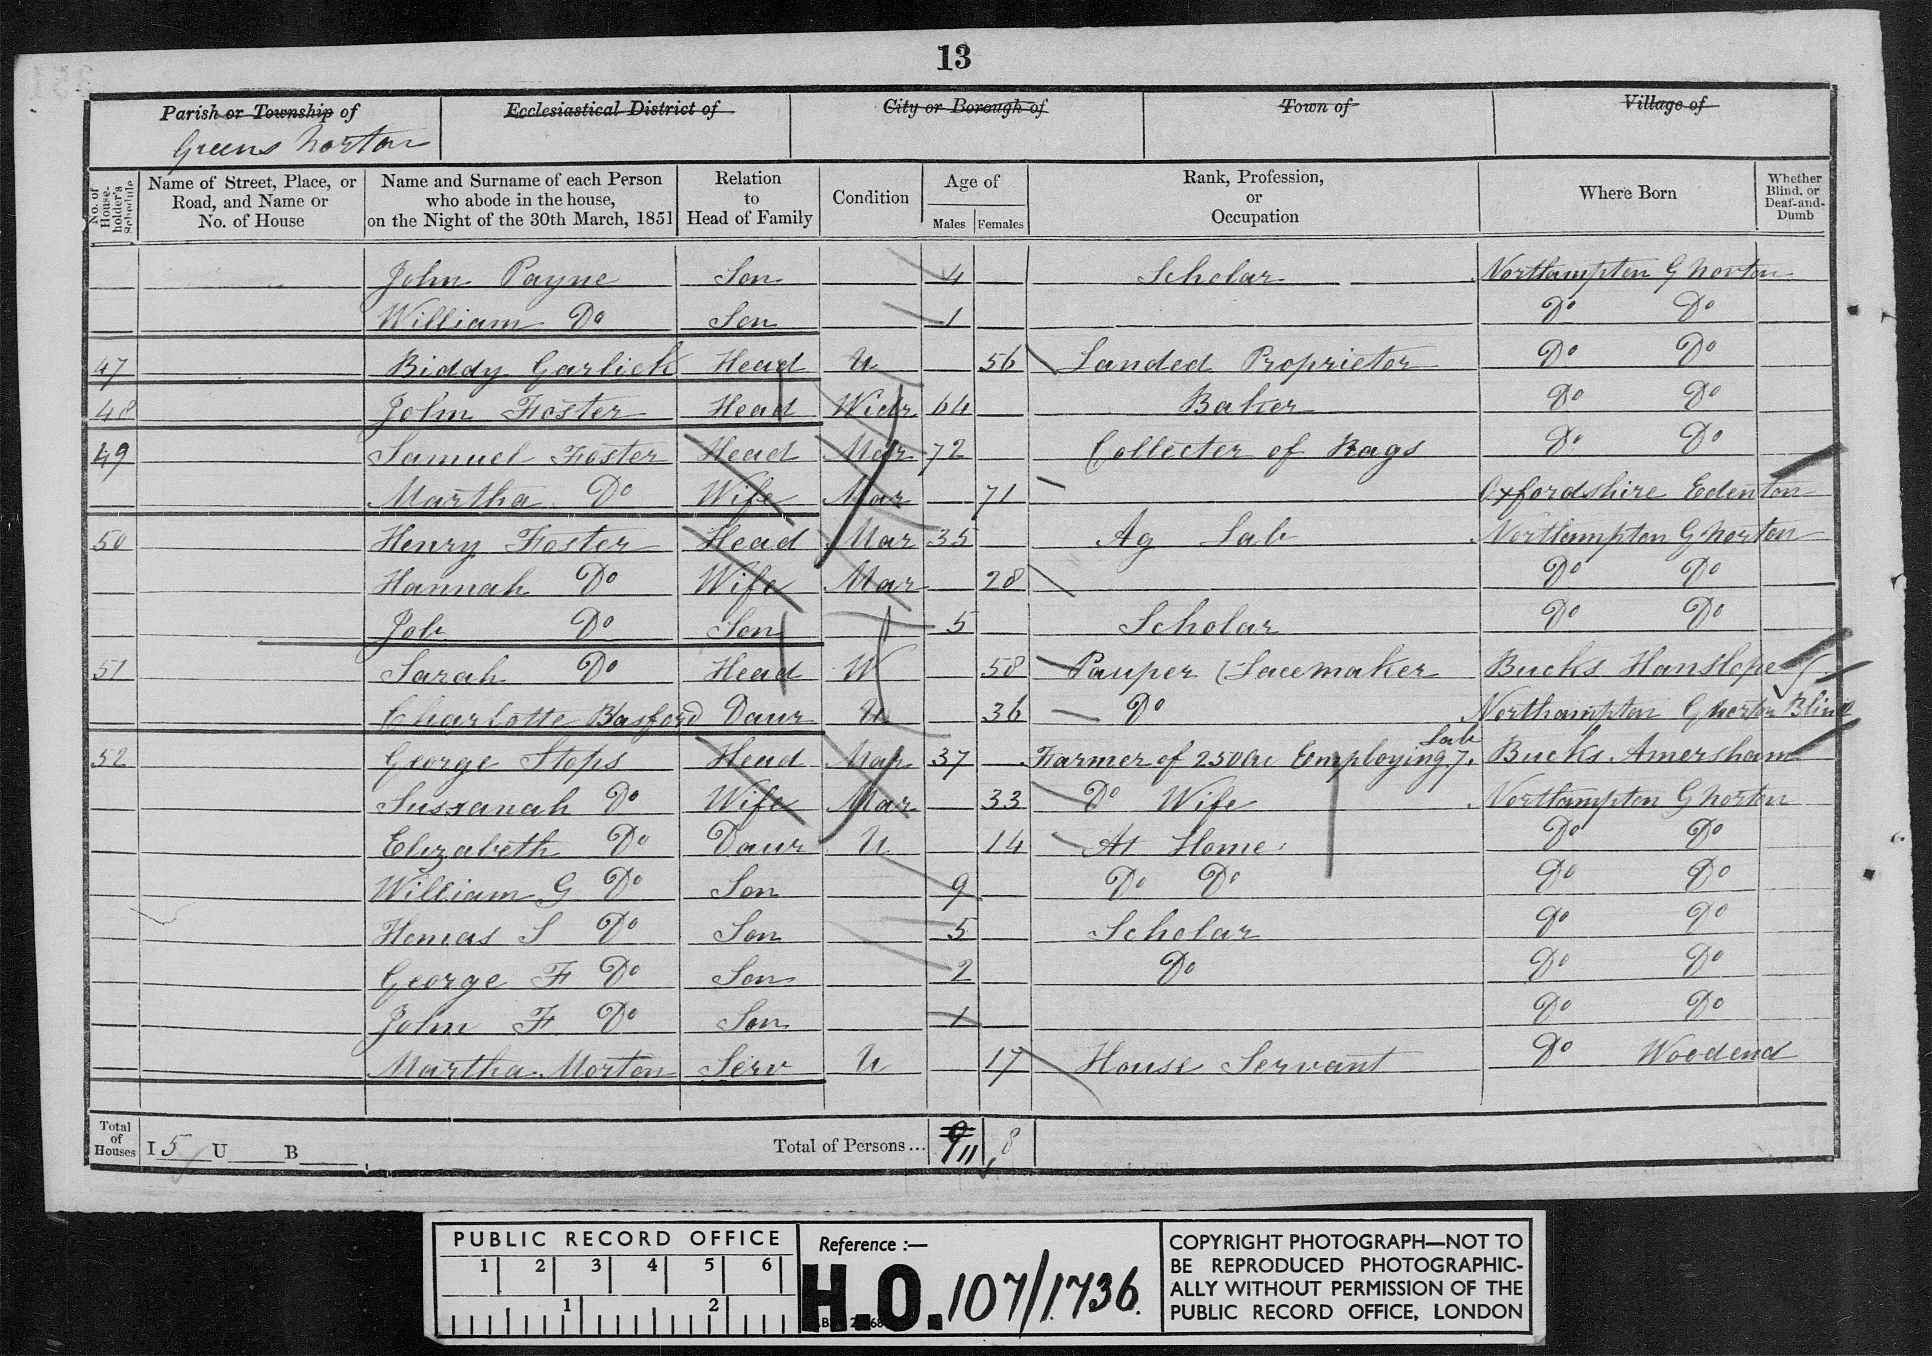 13
Parish or Township of Ecclesiastical District of City or Borough of Town of Village of
Greens Norton
No. of House-holder's Schedule Name of Street, Place, or Road, and Name or No. of House Name and Surname of each Person who abode in the house, on the Night of the 30th March, 1851 Relation to Head of Family Condition Age of Males Females Rank, Profession, or Occupation Where Born Whether Blind, or Deaf-and-Dumb
John Payne Son 4 Scholar Northampton G Norton
William Do Son 1 Do Do
47 Biddy Garlick Head U 56 Landed Proprietor Do Do
48 John Foster Head Widr 64 Baker Do Do
49 Samuel Foster Head Mar 72 Collecter of Rags Do Do
Martha Do Wife Mar 71 Oxfordshire Edenton
50 Henry Foster Head Mar 35 Ag Lab Northampton G Norton
Hannah Do Wife Mar 28 Do Do
Job Do Son 5 Scholar Do Do
51 Sarah Do Head W 58 Pauper (Lacemaker Bucks Hanslope
Charlotte Basford Daur U 36 Do Northampton G Norton Blind
52 George Stops Head Mar 37 Farmer of 250 Ac Employing 7 Lab Bucks Amersham
Susxanah Do Wife Mar 33 Do Wife Northampton G Norton
Elizabeth Do Daur U 14 At Home Do Do
William G Do Son 9 Do Do Do Do
Thomas S Do Son 5 Scholar Do Do
George F Do Son 2 Do Do Do
John F Do Son 1 Do Do
Martha Morton Serv U 17 House Servant Do Woodend
Total of Houses I 5 U B Total of Persons... 9 11 8
PUBLIC RECORD OFFICE
1 2 3 4 5 6
1 2
Reference :—
H.O. 107/1736.
COPYRIGHT PHOTOGRAPH—NOT TO
BE REPRODUCED PHOTOGRAPHIC-
ALLY WITHOUT PERMISSION OF THE
PUBLIC RECORD OFFICE, LONDON